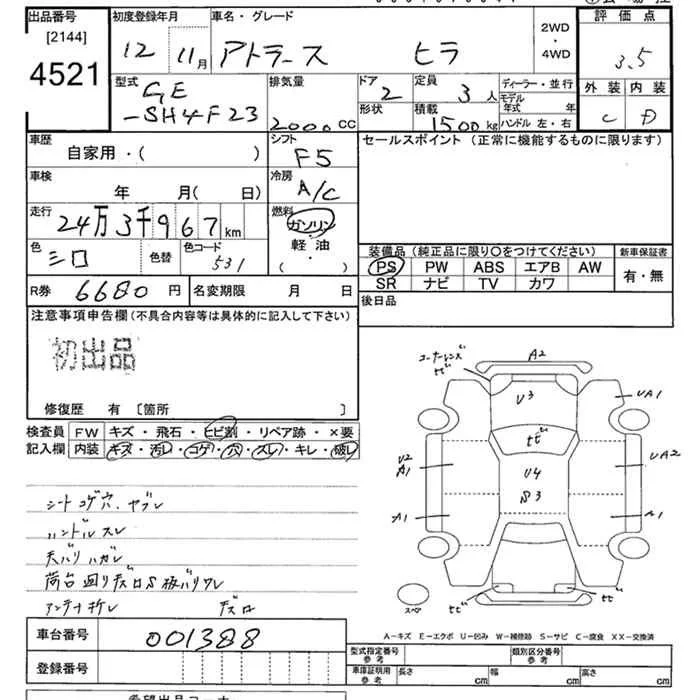 出品番号 初度登録年月 車名・グレード 2WD・4WD 評価点
[2144]
4521
12 11月 アトラース ヒラ 3.5
型式 GE-SH4F23 排気量 2000cc ドア 2 定員 3人 ディーラー・並行 外装 内装
形状 積載 1500kg モデル年式 年 C D
ハンドル 左・右
車歴 シフト セールスポイント (正常に機能するものに限ります)
自家用・( ) F5
車検 冷房
年 月( 日) A/C
走行 燃料
24万3千967km ガソリン・軽油・( )
色 シロ 色替 色コード 531
装備品(純正品に限り○をつけてください) 新車保証書
PS PW ABS エアB AW 有・無
SR ナビ TV カワ
R券 6680円 名変期限 月 日 後日品
注意事項申告欄(不具合内容等は具体的に記入して下さい)
初出品
修復歴 有 〔箇所 〕
検査員 FW キズ・飛石・ヒビ割・リペア跡・×要
記入欄 内装 キズ・汚レ・コゲ・穴・スレ・キレ・破レ
シートコゲ穴、ヤブレ
ハンドルスレ
天バリハガレ
荷台廻りデスロS 板バリワレ
アンテナ折レ デスロ
コーナーレンズ ヒビ A2
U3 UA1
ヒビ
U2 A1 U4 S3 UA2
A1 A1
ヒビ ヒビ
スペア
A－キズ E－エクボ U－凹み W－補修跡 S－サビ C－腐食 XX－交換済
車台番号 001388
型式指定番号 参考 類別区分番号 参考
登録番号
車庫証明用 参考 長さ cm 幅 cm 高さ cm